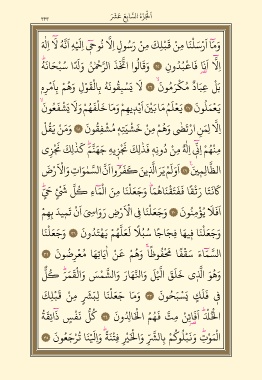 اَلْجُزْءُ السَّابِعَ عَشَرَ
وَمَٓا اَرْسَلْنَا مِنْ قَبْلِكَ مِنْ رَسُولٍ اِلَّا نُوحٖٓي اِلَيْهِ اَنَّهُ لَٓا اِلٰهَ
اِلَّٓا اَنَا۬ فَاعْبُدُونِ ﴿٢٥﴾ وَقَالُوا اتَّخَذَ الرَّحْمٰنُ وَلَدًا سُبْحَانَهُ
بَلْ عِبَادٌ مُكْرَمُونَ ﴿٢٦﴾ لَا يَسْبِقُونَهُ بِالْقَوْلِ وَهُمْ بِاَمْرِهٖ
يَعْمَلُونَ ﴿٢٧﴾ يَعْلَمُ مَا بَيْنَ اَيْدٖيهِمْ وَمَا خَلْفَهُمْ وَلَا يَشْفَعُونَ
اِلَّا لِمَنِ ارْتَضٰى وَهُمْ مِنْ خَشْيَتِهٖ مُشْفِقُونَ ﴿٢٨﴾ وَمَنْ يَقُلْ
مِنْهُمْ اِنّٖٓي اِلٰهٌ مِنْ دُونِهٖ فَذٰلِكَ نَجْزٖيهِ جَهَنَّمَ كَذٰلِكَ نَجْزِي
الظَّالِمٖينَ ﴿٢٩﴾ اَوَلَمْ يَرَ الَّذٖينَ كَفَرُٓوا اَنَّ السَّمٰوَاتِ وَالْاَرْضَ
كَانَتَا رَتْقًا فَفَتَقْنَاهُمَا وَجَعَلْنَا مِنَ الْمَٓاءِ كُلَّ شَيْءٍ حَيٍّ
اَفَلَا يُؤْمِنُونَ ﴿٣٠﴾ وَجَعَلْنَا فِي الْاَرْضِ رَوَاسِيَ اَنْ تَمٖيدَ بِهِمْ
وَجَعَلْنَا فٖيهَا فِجَاجًا سُبُلًا لَعَلَّهُمْ يَهْتَدُونَ ﴿٣١﴾ وَجَعَلْنَا
السَّمَٓاءَ سَقْفًا مَحْفُوظًا وَهُمْ عَنْ اٰيَاتِهَا مُعْرِضُونَ ﴿٣٢﴾
وَهُوَ الَّذٖي خَلَقَ الَّيْلَ وَالنَّهَارَ وَالشَّمْسَ وَالْقَمَرَ كُلٌّ
فٖي فَلَكٍ يَسْبَحُونَ ﴿٣٣﴾ وَمَا جَعَلْنَا لِبَشَرٍ مِنْ قَبْلِكَ
الْخُلْدَ اَفَا۬ئِنْ مِتَّ فَهُمُ الْخَالِدُونَ ﴿٣٤﴾ كُلُّ نَفْسٍ ذَٓائِقَةُ
الْمَوْتِ وَنَبْلُوكُمْ بِالشَّرِّ وَالْخَيْرِ فِتْنَةً وَاِلَيْنَا تُرْجَعُونَ ﴿٣٥﴾